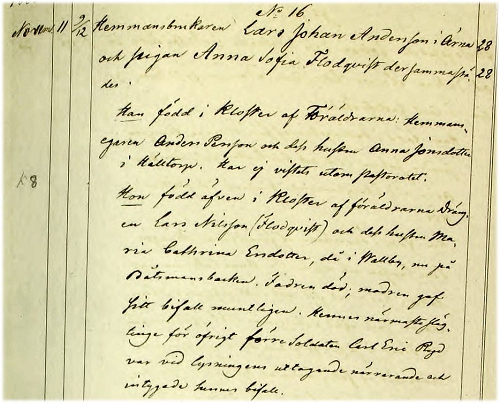 No 16.
Novem 11 9/12 Hemmansbrukaren Lars Johan Andersson i Ärna 28
och pigan Anna Sofia Flodqvist dersammastä- 28
des.
Han född i Kloster af Föräldrarna: Hemmans-
egaren Anders Persson och dess hustru Anna Jonsdotter
i Hälltorp. Har ej vistats utom pastoratet.
Hon född äfven i Kloster af föräldrarna Dräng-
en Lars Nilsson (Flodqvist) och dess hustru Ma-
ria Cathrina Ersdotter, då i Wallby, nu på
Båtsmansbacken. Fadren död; modren gaf
sitt bifall muntligen. Hennes närmaste släg-
tinge för öfrigt förre Soldaten Carl Eric
var vid lysningens uttagande närvarande och
intygade hennes bifall.
8